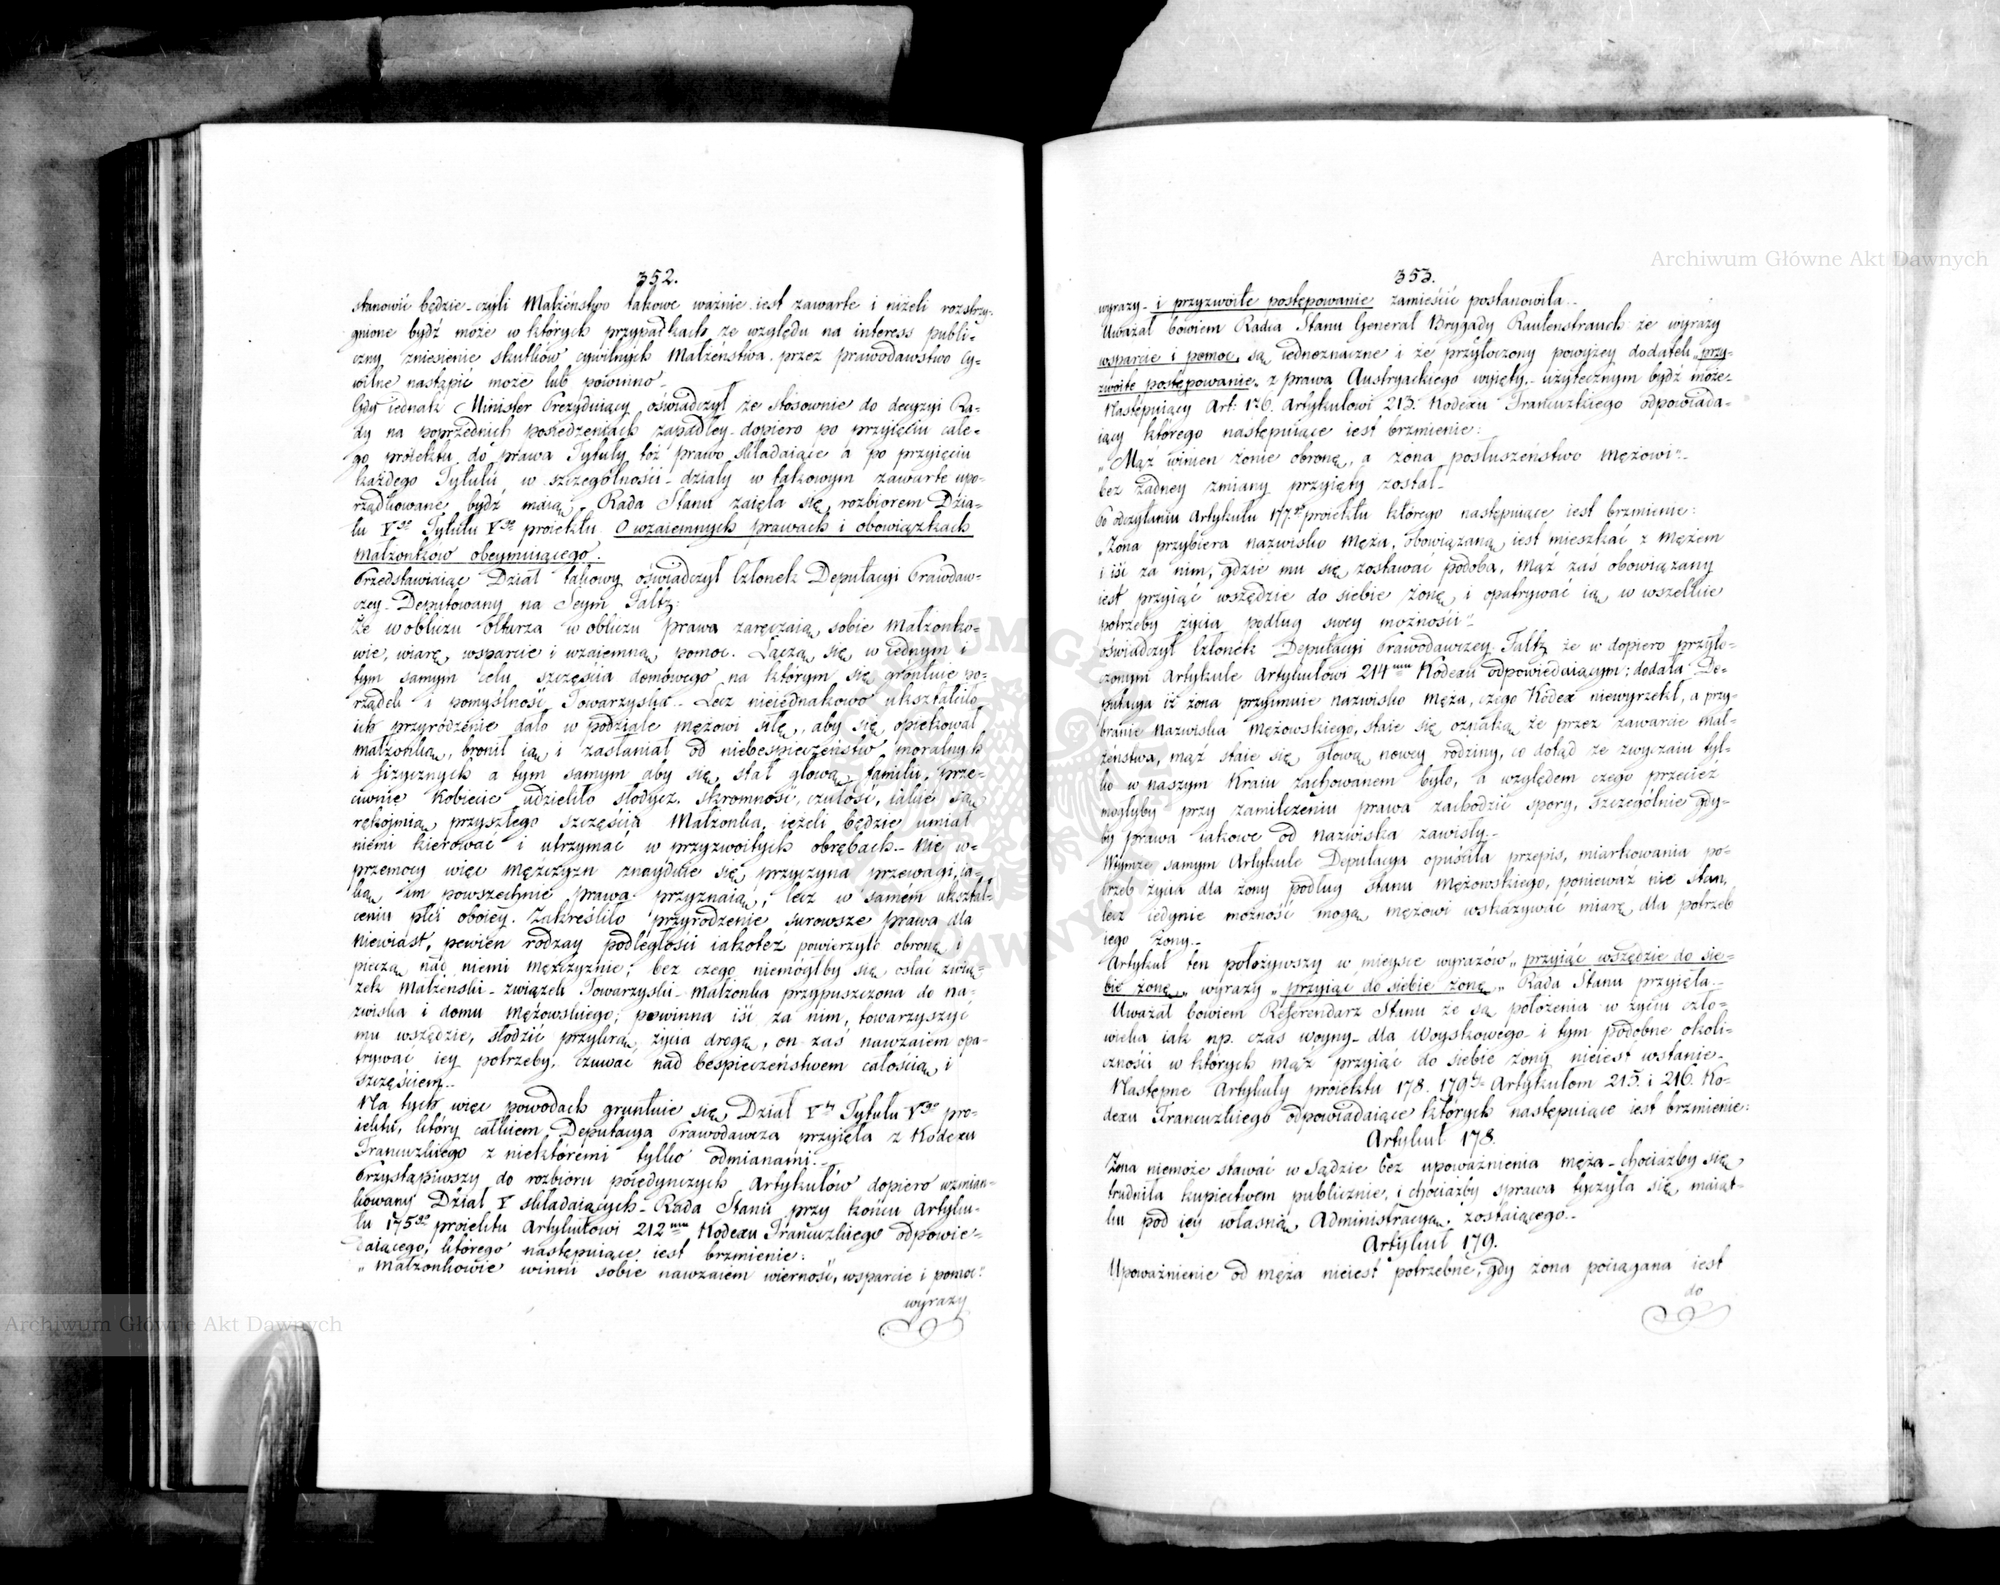 352.
stanowić będzie czyli Małżeństwo takowe ważnie iest zawarte i niżeli rozstrzy-
gnione bydź może w których przypadkach ze względu na interess publi-
czny zniesienie skutków cywilnych Małżeństwa przez prawodawstwo Cy-
wilne nastąpić może lub powinno.
Gdy iednak Minister Prezyduiący oświadczył że stosownie do decyzyi Ra-
dy na poprzednich posiedzeniach zapadłey dopiero po przyięciu całe-
go proiektu do prawa Tytuły toż prawo składaiące a po przyięciu
każdego Tytułu w szczególności działy w takowym zawarte upo-
rządkowane bydź maią, Rada Stanu zaięła się rozbiorem Dzia-
łu Vgo Tytułu Vgo proiektu O wzaiemnych prawach i obowiązkach
Małżonków obeymuiącego.
Przedstawiaiąc Dział takowy oświadczył Członek Deputacyi Prawodaw-
czey Deputowany na Seym Faltz:
że w obliczu ołtarza w obliczu prawa zaręczaią sobie Małżonko-
wie, wiarę, wsparcie i wzaiemną pomoc. Łączą się w iednym i
tym samym celu szczęścia domowego na którym się gruntuie po-
rządek i pomyślność Towarzyska. Lecz nieiednakowo ukształciło
ich przyrodzenie dało w podziale mężowi siłę, aby się opiekował
małżonką, bronił ią, i zasłaniał od niebespieczeństw moralnych
i fizycznych a tym samym aby się stał głową familii, prze-
ciwnie Kobiecie udzieliło słodycz, skromność, czułość, iakie są
rękoymią przyszłego szczęścia Małżonka, ieżeli będzie umiał
niemi kierować i utrzymać w przyzwoitych obrębach. Nie w
przemocy więc mężczyzn znayduie się przyczyna przewagi, ia-
ką im powszechnie prawa przyznaią; lecz w samém ukształ-
ceniu płci oboiey. Zakreśliło przyrodzenie surowsze prawa dla
Niewiast, pewien rodzay podległości iakoteż powierzyło obronę i
pieczą nad niemi mężczyznie; bez czego niemógłby się ostać zwią-
zek Małżeński związek Towarzyski Małżonka przypuszczona do na-
zwiska i domu mężowskiego; powinna iść za nim, towarzyszyć
mu wszędzie, słodzić przykrą życia drogę, on zaś nawzaiem opa-
trywać iey potrzeby, czuwać nad bespieczeństwem całością i
szczęściem.
Na tych więc powodach gruntuie się Dział Vty Tytułu Vgo pro-
iektu, który całkiem Deputacya Prawodawcza przyięła z Kodexu
Francuzkiego z niektóremi tylko odmianami.
Przystąpiwszy do rozbioru poiedynczych Artykułów dopiero wzmian-
kowany Dział V składaiących Rada Stanu przy końcu Artyku-
łu 175go proiektu Artykułowi 212mu Kodexu Francuzkiego odpowie-
daiącego, którego następuiące iest brzmienie:
„Małżonkowie winni sobie nawzaiem wierność, wsparcie i pomoc."
wyrazy
353.
wyrazy i przyzwoite postępowanie zamieścić postanowiła.
Uważał bowiem Radca Stanu Generał Brygady Rautenstrauch że wyrazy
wsparcie i pomoc, są iednoznaczne i że przytoczony powyżey dodatek „przy-
zwoite postępowanie" z prawa Austryackiego wzięty użytecznym bydź może.
Następuiący Art: 176. Artykułowi 213. Kodexu Francuzkiego odpowiada-
iący którego następuiące iest brzmienie:
„Mąż winien żonie obronę, a żona posłuszeństwo mężowi"
bez żadney zmiany przyięty został.
Po odczytaniu Artykułu 177go proiektu którego następuiące iest brzmienie:
„Żona przybiera nazwisko męża, obowiązaną iest mieszkać z mężem
i iść za nim, gdzie mu się zostawać podoba, mąż zaś obowiązany
iest przyiąć wszędzie do siebie żonę, i opatrywać ią w wszelkie
potrzeby życia podług swey możności"
oświadczył Członek Deputacyi Prawodawczey Faltz że w dopiero przyto-
czonym Artykule Artykułowi 214mu Kodexu odpowiedaiącym; dodała De-
putacya iż żona przyimuie nazwisko męża, czego Kodex niewyrzekł, a przy-
branie nazwiska mężowskiego, staie się oznaką że przez zawarcie mał-
żeństwa, mąż staie się głową nowey rodziny, co dotąd ze zwyczaiu tyl-
ko w naszym Kraiu zachowanem było, a względem czego przecież
mogłyby przy zamilczeniu prawa zachodzić spory, szczególnie gdy-
by prawa iakowe od nazwiska zawisły.
W tymże samym Artykule Deputacya opuściła przepis, miarkowania po-
trzeb życia dla żony podług stanu mężowskiego, ponieważ nie stan,
lecz iedynie możność mogą mężowi wskazywać miarę dla potrzeb
iego żony.
Artykuł ten położywszy w mieysce wyrazów „przyiąć wszędzie do sie-
bie żonę" wyrazy „przyiąć do siebie żonę" Rada Stanu przyięła.
Uważał bowiem Referendarz Stanu że są położenia w życiu czło-
wieka iak np. czas woyny dla Woyskowego i tym podobne okoli-
czności w których mąż przyiąć do siebie żony nieiest wstanie.
Następne Artykuły proiektu 178. 179ty Artykułom 215. i 216. Ko-
dexu Francuzkiego odpowiadaiące których następuiące iest brzmienie:
Artykuł 178.
Żona niemoże stawać w Sądzie bez upoważnienia męża chociażby się
trudniła kupiectwem publicznie, i chociażby sprawa tyczyła się maiąt-
ku pod iey własną Administracyą zostaiącego.
Artykuł 179.
Upoważnienie od męża nieiest potrzebne, gdy żona pociągana iest
do
Archiwum Główne Akt Dawnych
Archiwum Główne Akt Dawnych